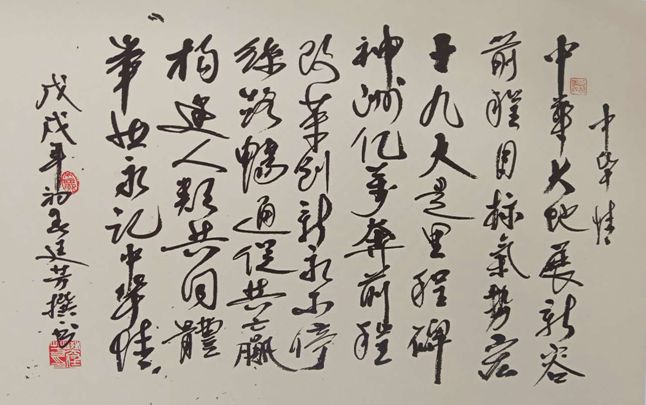 中华情
中華大地展新容
前程目标氣勢宏
十九大是里程碑
神洲亿万奔前程
改革创新永不停
絲路暢通促共贏
构建人類共同體
举世永记中华情
戊戌年初 廷芳撰书